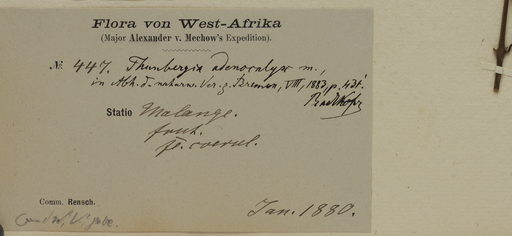 Flora von West-Afrika
(Major Alexander v. Mechow's Expedition).
№ 447. Thunbergia adenocalyx m.,
in Abh. d. naturw. Ver. z. Bremen, VIII, 1883, p.
Statio Malange.
frut.
fl. coerul.
Comm. Rensch.
Jan. 1880.